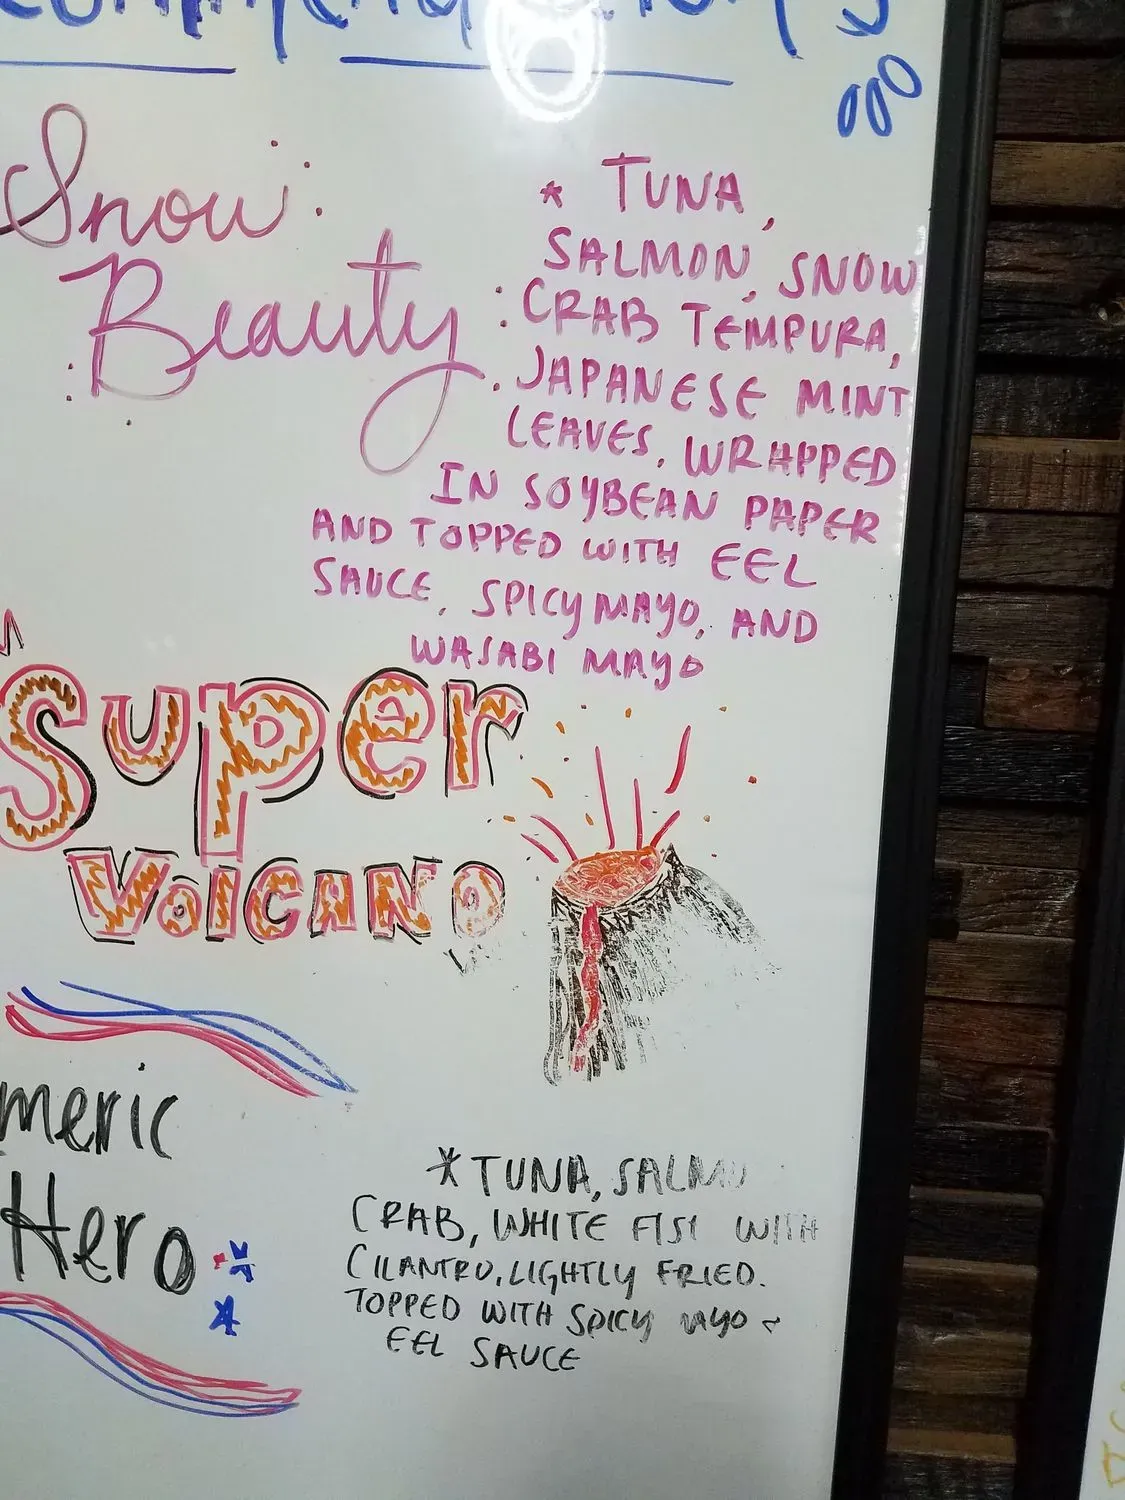 Snow
Beauty
* TUNA,
SALMON, SNOW
CRAB TEMPURA,
JAPANESE MINT
LEAVES, WRAPPED
IN SOYBEAN PAPER
AND TOPPED WITH EEL
SAUCE, SPICY MAYO, AND
WASABI MAYO
Super
VOLCANO
meric
Hero
* TUNA, SALMO
CRAB, WHITE FISH WITH
CILANTRO, LIGHTLY FRIED.
TOPPED WITH SPICY MAYO &
EEL SAUCE